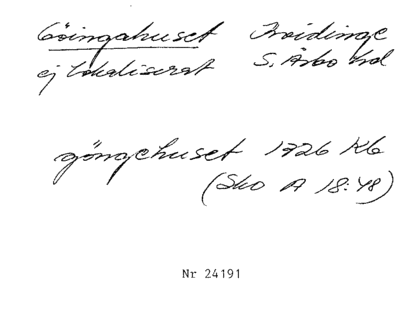 Göingahuset Troidinge
ej lokaliserat S. Åsbo hd
göngehuset 1726 Kb
(Sko A 18:48)
Nr 24191